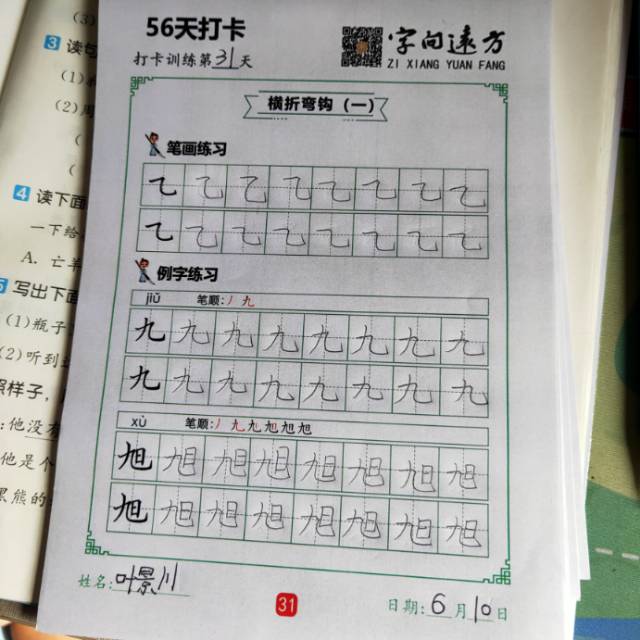 56天打卡
打卡训练第31天
字向遠方
ZI XIANG YUAN FANG
横折弯钩（一）
笔画练习
乙 乙 乙 乙 乙 乙 乙 乙
乙 乙 乙 乙 乙 乙 乙 乙
例字练习
jiǔ 笔顺:丿九
九 九 九 九 九 九 九 九
九 九 九 九 九 九 九 九
xù 笔顺:丿九九旭旭旭
旭 旭 旭 旭 旭 旭 旭 旭
旭 旭 旭 旭 旭 旭 旭 旭
姓名:叶景川
31
日期:6月10日
(3)
3 读句
(1)
(2)
4 读下面
一下给
A. 亡羊
5 写出下面
(1)瓶子
(2)听到
照样子，
:他没有
他是个
黑熊的